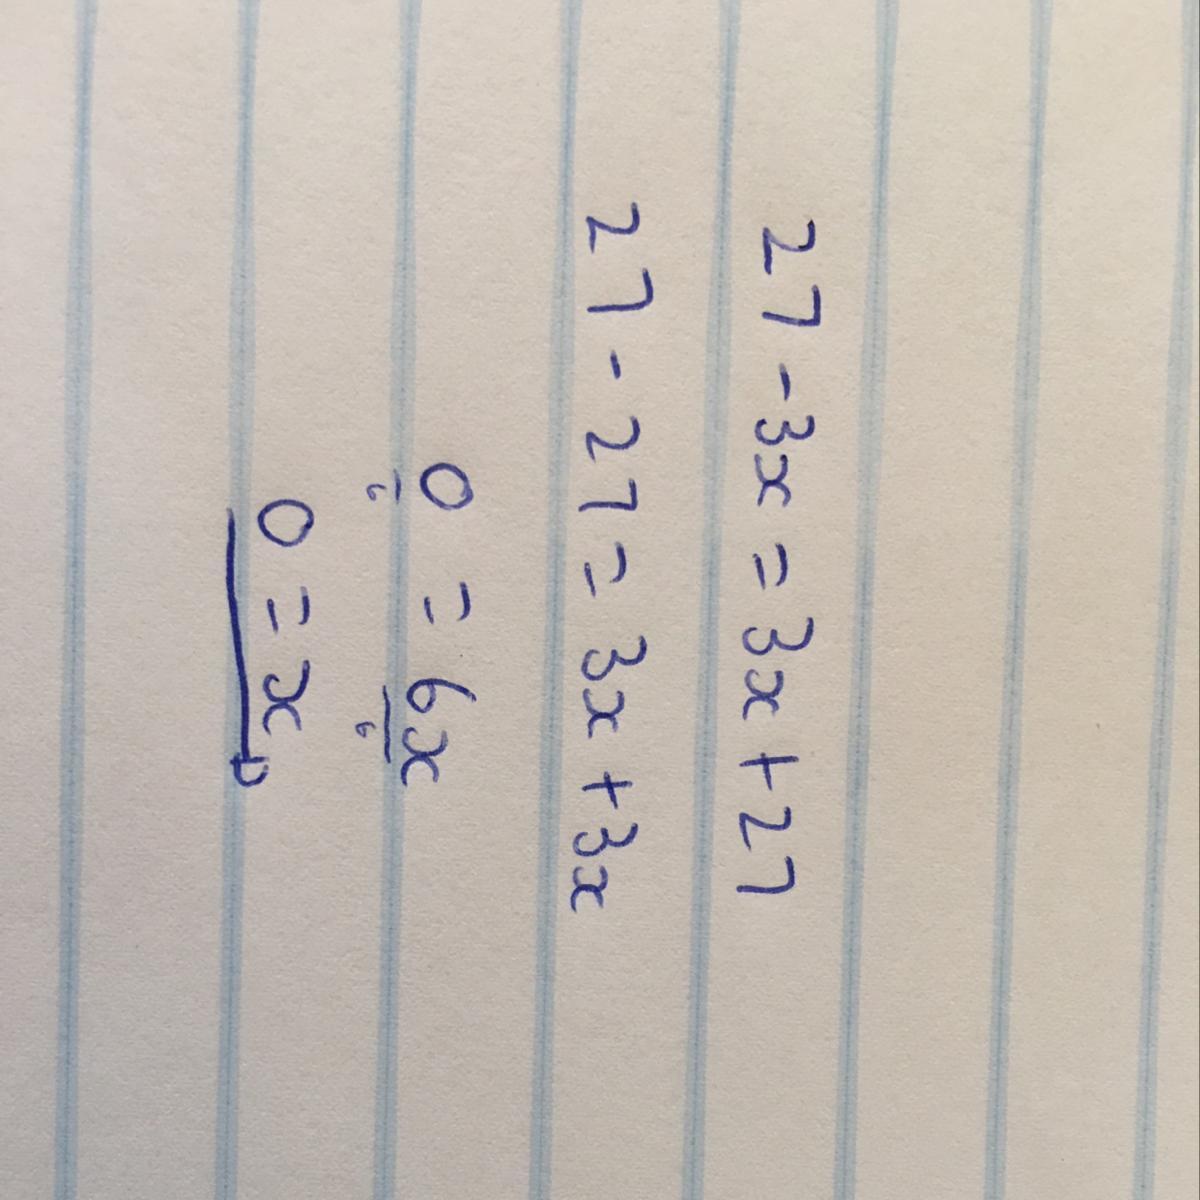 27 - 3x = 3x + 27
27 - 27 = 3x + 3x
0/6 = 6x/6
0 = x